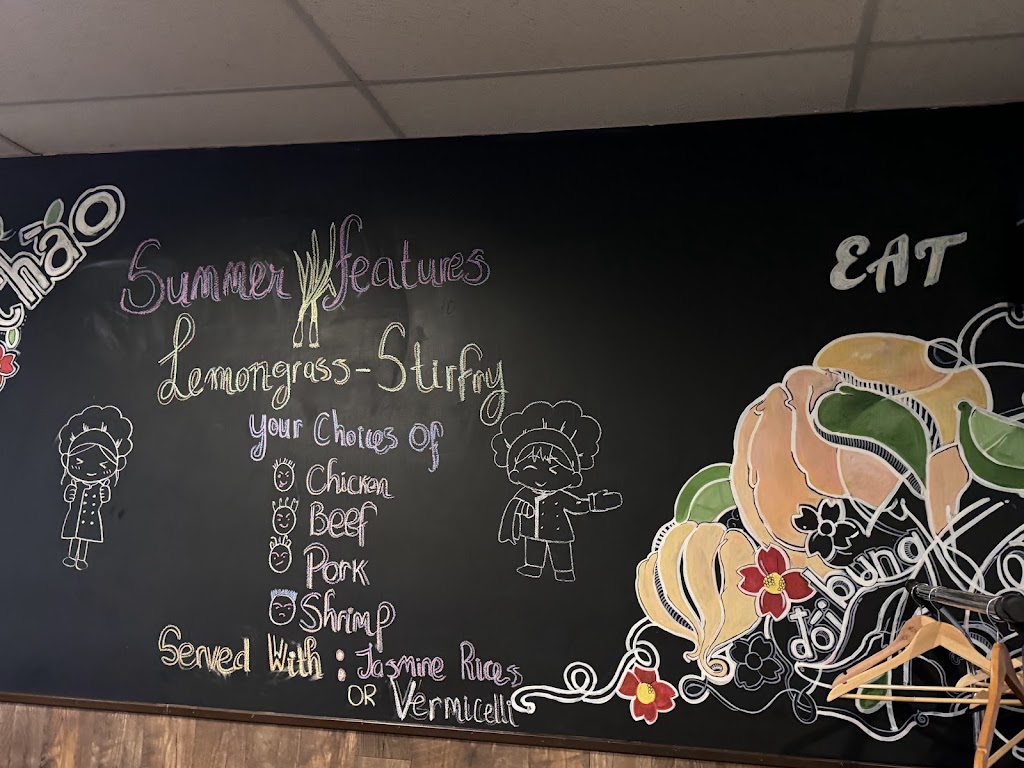 chào
Summer features
EAT
Lemongrass-Stirfry
your Choices Of
Chicken
Beef
Pork
Shrimp
Served With : Jasmine Rices
OR Vermicelli
tôi bụng